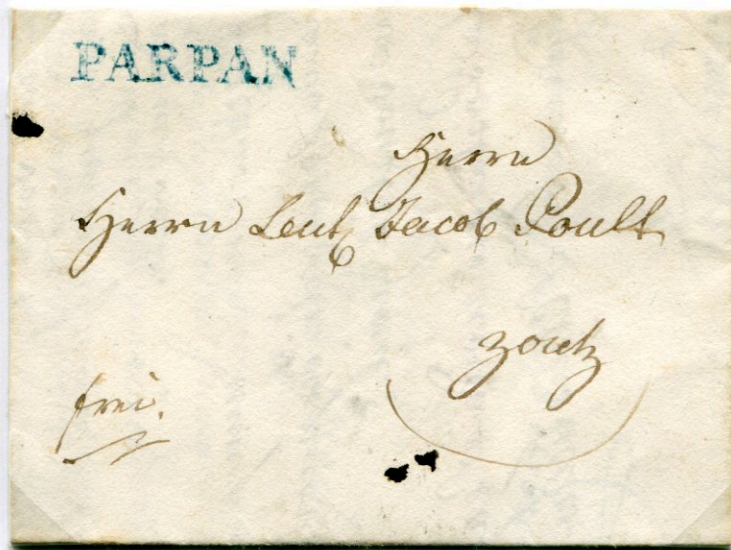 PARPAN
Herrn
Herrn Leut Jacob Poult
Zoutz
frei.